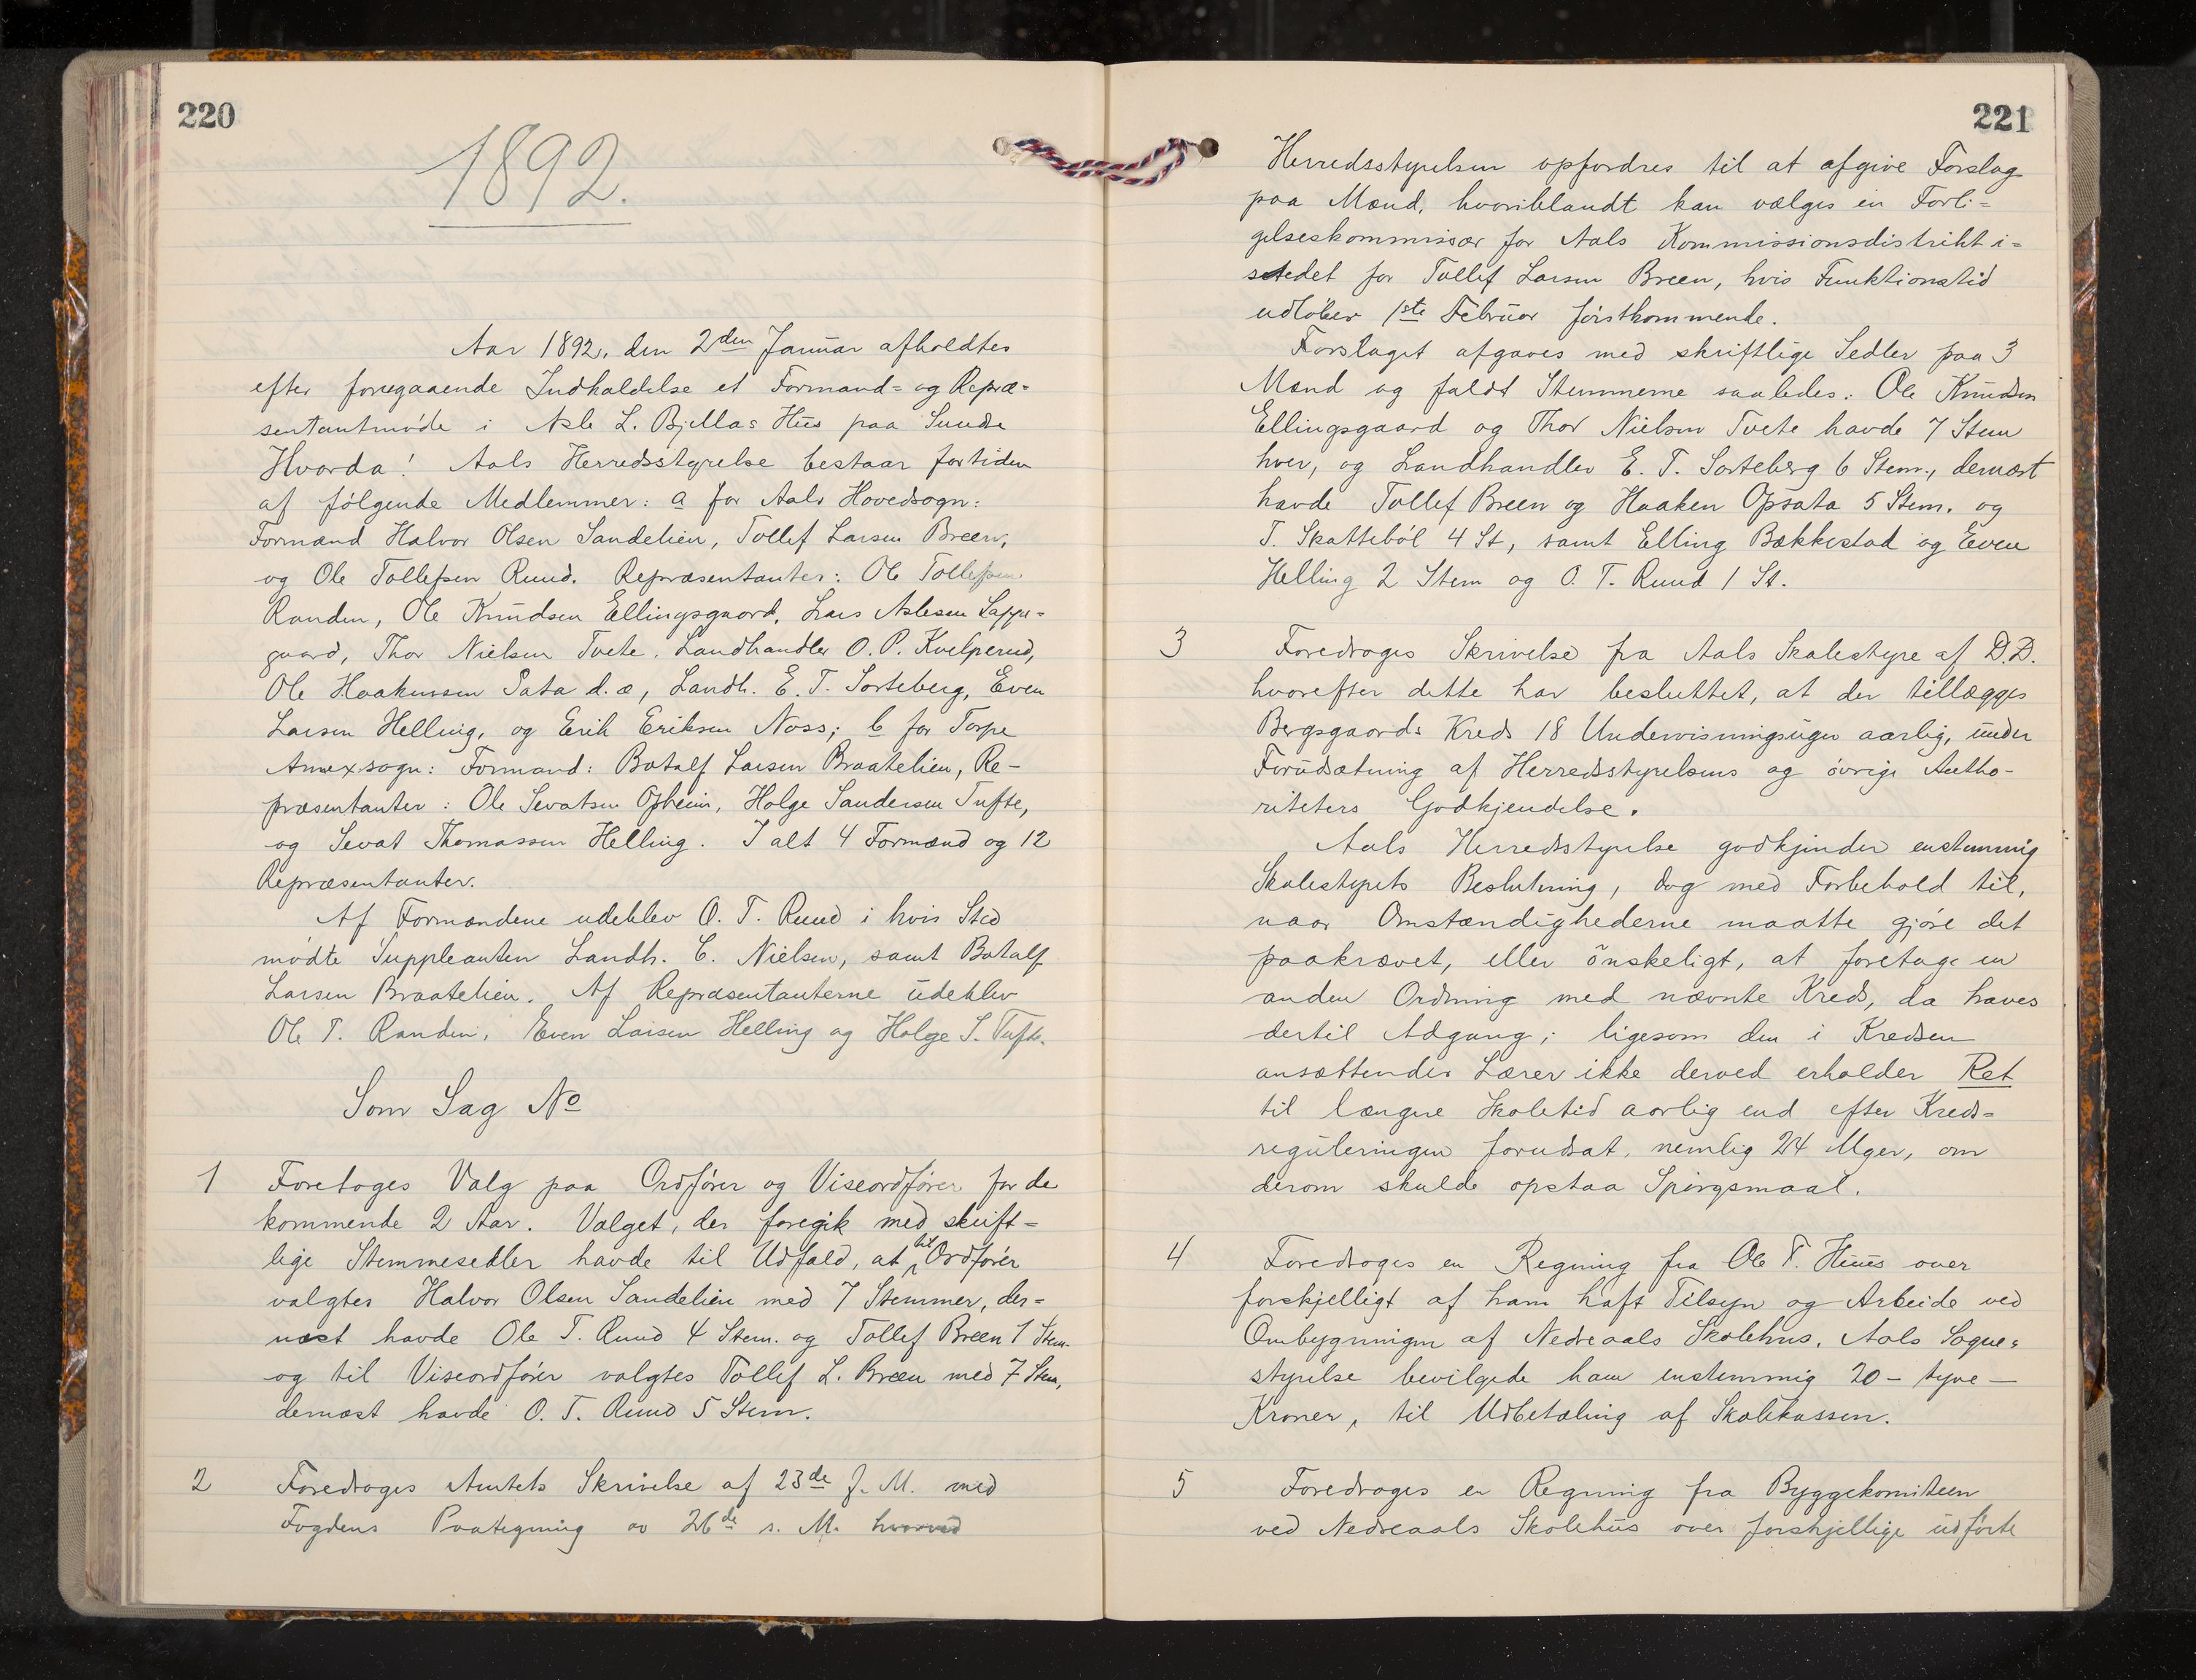 220
1892.
Aar 1892, den 2den Januar afholdtes
efter foregaaende Indkaldelse et Formand= og Repræ=
sentantmøde i Asle L. Bjellas Hus paa Sundre
Hvorda! Aals Herredsstyrelse bestaar fortiden
af følgende Medlemmer: a for Aals Hovedsogn:
Formænd Halvor Olsen Sandelien, Tollef Larsen Breen,
og Ole Tollefsen Ruud. Repræsentanter: Ole Tollefsen
Randen, Ole Knudsen Ellingsgaard, Lars Aslesen Lappe=
gaard, Thor Nielsen Tvete, Landhandler O. P. Kvelprud,
Ole Haakensen Sata d.æ, Landh. E. T. Sorteberg, Even
Larsen Helling, og Erik Eriksen Noss; b for Torpe
Annexsogn: Formand: Botolf Larsen Braatelien, Re-
præsentanter: Ole Sevatsen Opheim, Holge Sandersen Tufte,
og Sevat Thomassen Helling. I alt 4 Formænd og 12
Repræsentanter.
Af Formændene udeblev O. T. Ruud i hvis Sted
mødte Suppleanten Landh. C. Nielsen, samt Botolf
Larsen Braatelien. Af Repræsentanterne udeblev
Ole T. Randen, Even Larsen Helling og Holge S. Tufte.
Som Sag No
1 Foretoges Valg paa Ordfører og Viseordfører for de
kommende 2 Aar. Valget, der foregik med skrift=
lige Stemmesedler havde til Udfald, at til Ordfører
valgtes Halvor Olsen Sandelien med 7 Stemmer, der=
næst havde Ole T. Ruud 4 Stem. og Tollef Breen 1 Stem.
og til Viseordfører valgtes Tollef L. Breen med 7 Stem,
dernæst havde O. T. Ruud 5 Stem.
2 Foredroges Amtets Skrivelse af 23de f. M. med
Fogdens Paategning av 26de s. M. hvorved
221
Herredsstyrelsen opfordres til at afgive Forslag
paa Mænd, hvoriblandt kan vælges en Forli=
gelseskommissær for Aals Kommissionsdistrikt i=
stedet for Tollef Larsen Breen, hvis Funktionstid
udløber 1ste Februar førstkommende.
Forslaget afgaves med skriftlige Sedler paa 3
Mænd og faldt Stemmerne saaledes: Ole Knudsen
Ellingsgaard og Thor Nielsen Tvete havde 7 Stem
hver, og Landhandler E. T. Sorteberg 6 Stem., dernæst
havde Tollef Breen og Haaken Opsata 5 Stem. og
T. Skattebøl 4 St, samt Elling Bækkestad og Even
Helling 2 Stem og O. T. Ruud 1 St.
3 Foredroges Skrivelse fra Aals Skolestyre af D.D.
hvorefter dette har besluttet, at der tillægges
Bergsgaards Kreds 18 Undervisningsuger aarlig, under
Forudsætning af Herredsstyrelsens og øvrige Autho-
riteters Godkjendelse.
Aals Herredsstyrelse godkjender enstemmig
Skolestyrets Beslutning, dog med Forbehold til,
naar Omstændighederne maatte gjøre det
paakrævet, eller ønskeligt, at foretage en
anden Ordning med nævnte Kreds, da haves
dertil Adgang; ligesom den i Kredsen
ansættendes Lærer ikke derved erholder Ret
til længre Skoletid aarlig end efter Kreds=
reguleringen forudsat, nemlig 24 Uger, om
derom skulde opstaa Spørgsmaal.
4 Foredroges en Regning fra Ole T. Huus over
forskjelligt af ham haft Tilsyn og Arbeide ved
Ombygningen af Nedreaals Skolehus. Aals Sogne=
styrelse bevilgede ham enstemmig 20 - tyve -
Kroner, til Udbetaling af Skolekassen.
5 Foredroges en Regning fra Byggekomiteen
ved Nedreaals Skolehus over forskjellige udførte